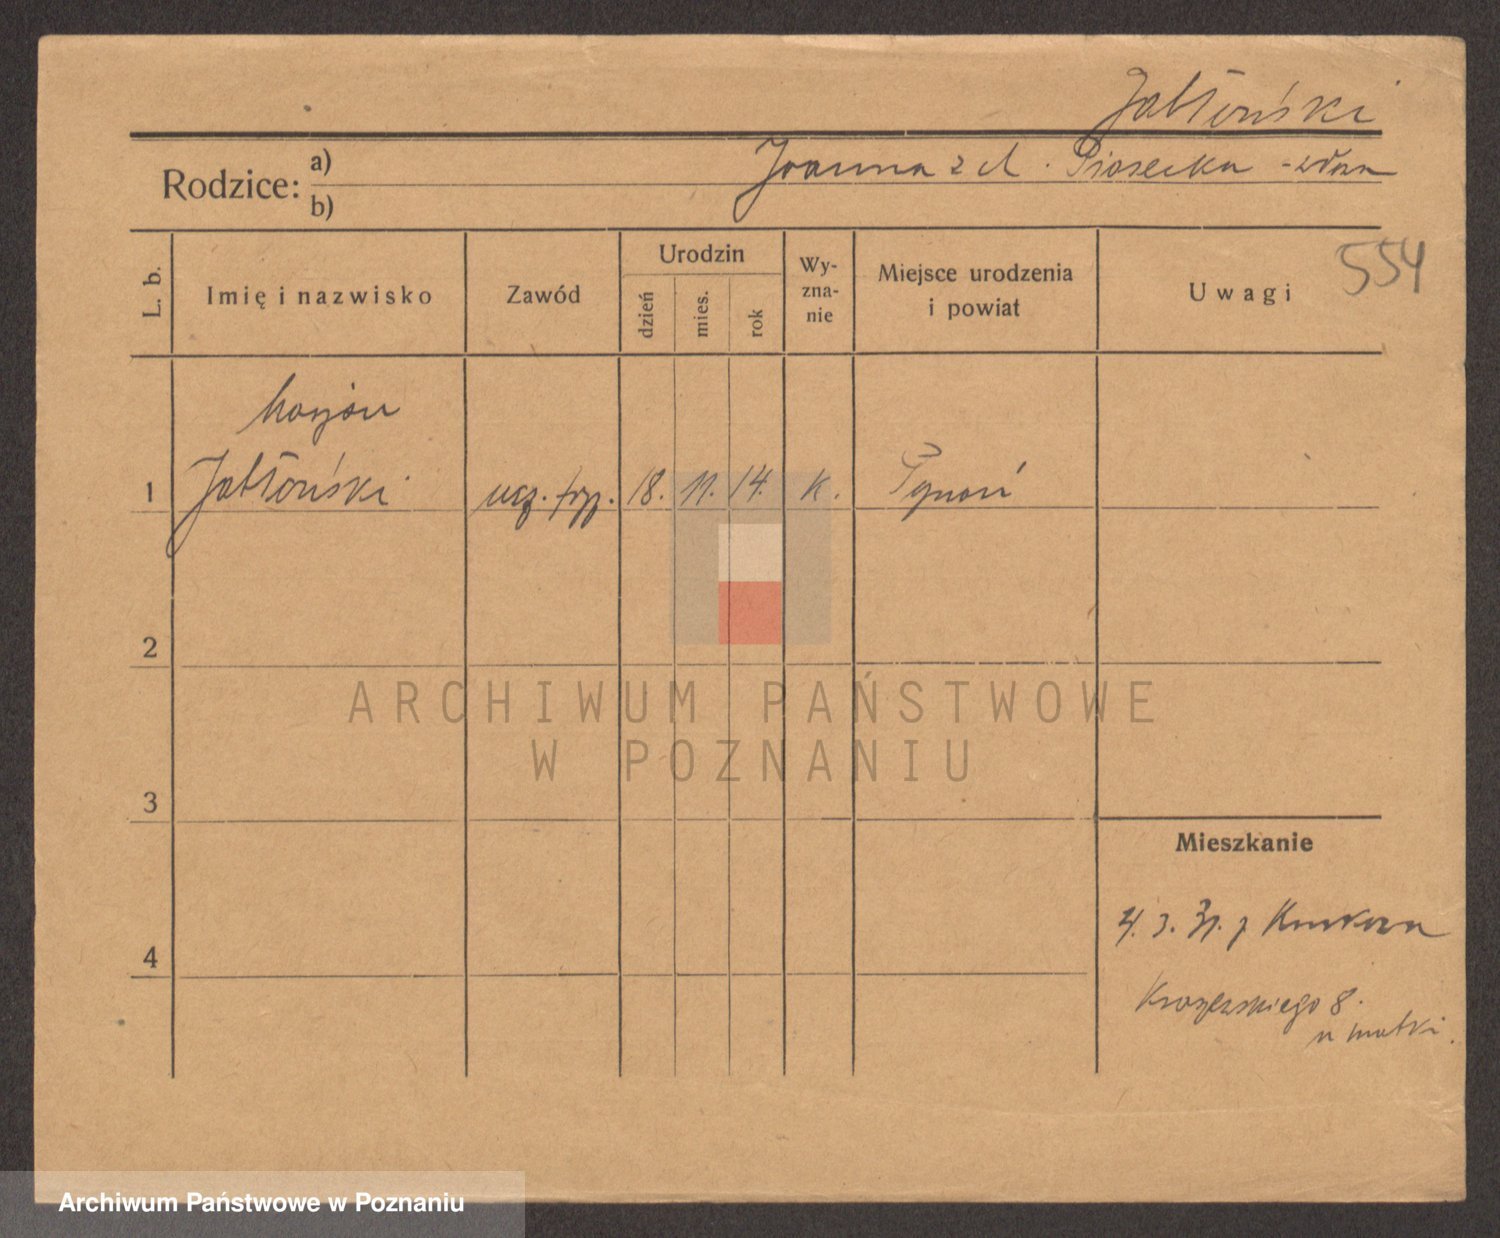 Jabłoński
Rodzice: a) Joanna z d. Piasecka - wdowa
b)
554
L. b.
Imię i nazwisko
Zawód
Urodzin
dzień
mies.
rok
Wy-
zna-
nie
Miejsce urodzenia
i powiat
Uwagi
Marjan
1 Jabłoński ucz. fryz. 18. 11. 14. k. Poznań
2
3
4
ARCHIWUM PAŃSTWOWE
W POZNANIU
Mieszkanie
4. 3. 31. z
Kraszewskiego 8.
u matki.
Archiwum Państwowe w Poznaniu